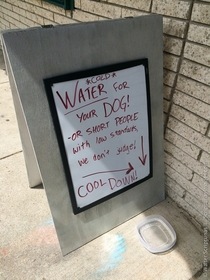 *COLD*
WATER FOR
YOUR DOG!
-OR SHORT PEOPLE
with low standards
we don't judge!
COOL DOWN!